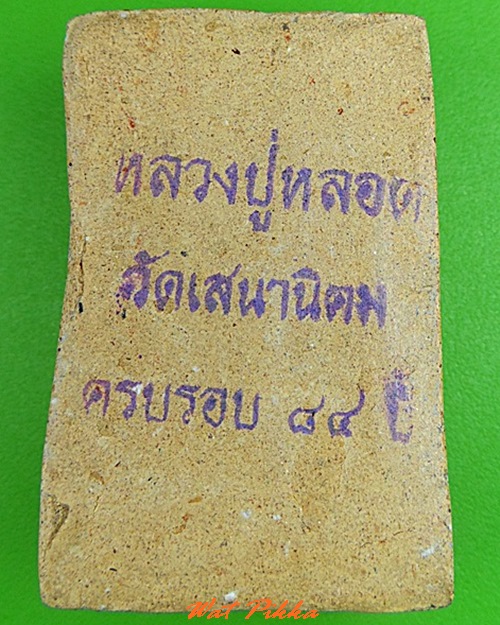 หลวงปู่หลอด
วัดเสนานิคม
ครบรอบ ๘๔ ปี
Wat Pikka